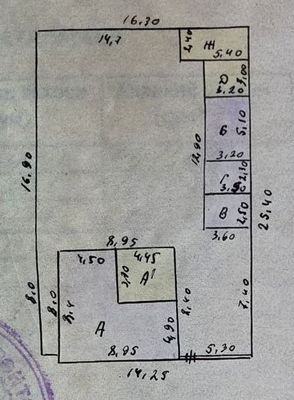 16,30
14,7
2,40
Ж
5,40
Д
3,00
3,20
Б
5,10
12,90
3,20
Г
2,30
16,90
В
2,50
3,60
25,40
8,95
4,50
4,45
А¹
8,0
8,0
8,40
7,40
А
4,90
8,95
5,30
14,25